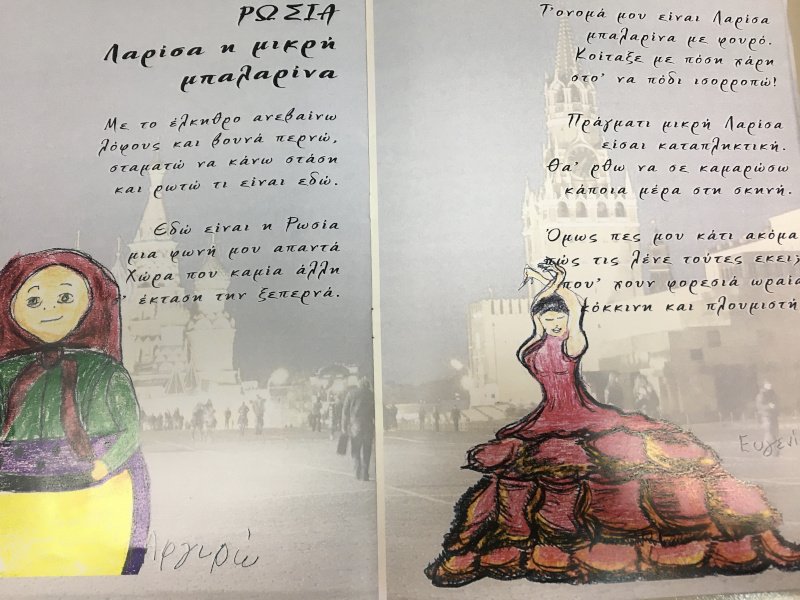 ΡΩΣΙΑ
Λαρίσα η μικρή
μπαλαρίνα
Με το έλκηθρο ανεβαίνω
λόφους και βουνά περνώ,
σταματώ να κάνω στάση
και ρωτώ τι είναι εδώ.
Εδώ είναι η Ρωσία
μια φωνή μου απαντά
Χώρα που καμία άλλη
σ' έκταση την ξεπερνά.
Αργυρώ
Τ'ονομά μου είναι Λαρίσα
μπαλαρίνα με φουρό.
Κοίταξε με πόση χάρη
στο' να πόδι ισορροπώ!
Πράγματι μικρή Λαρίσα
είσαι καταπληκτική.
Θα' ρθω να σε καμαρώσω
κάποια μέρα στη σκηνή.
Όμως πες μου κάτι ακόμα
πώς τις λένε τούτες εκεί;
που' χουν φορεσιά ωραία
κόκκινη και πλουμιστή